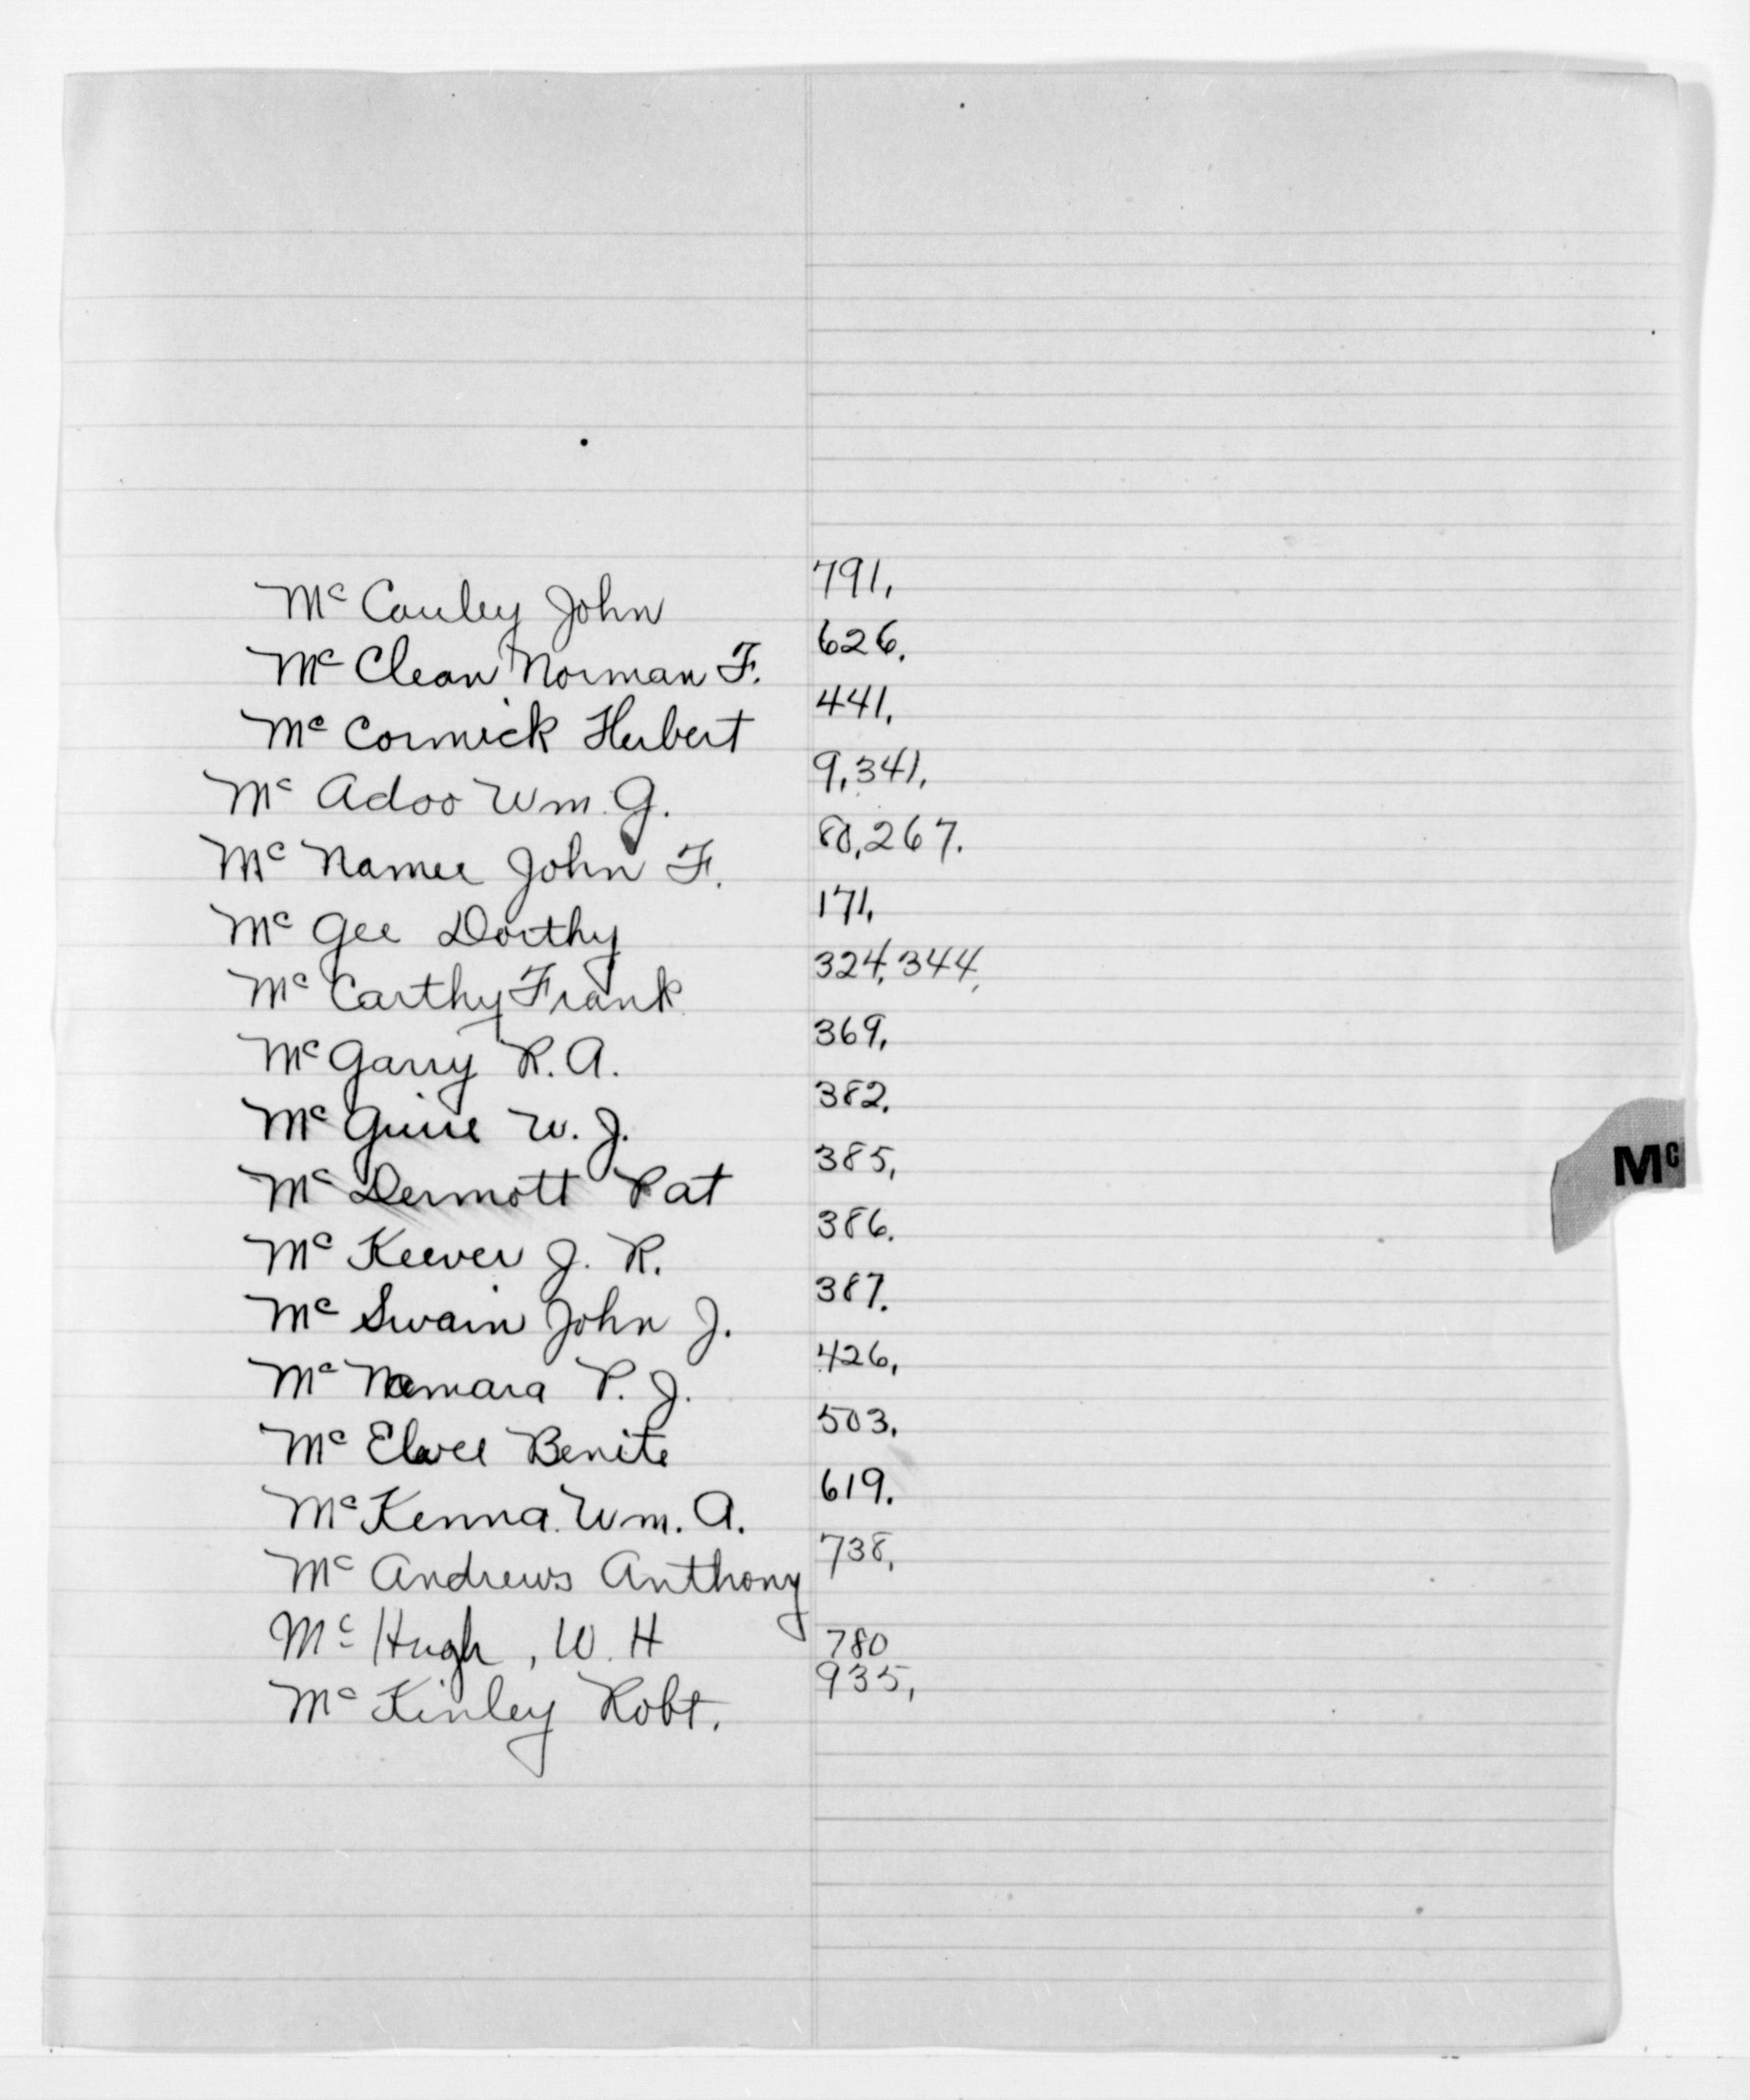 Mc Cauley John 791,
Mc Clean Norman F. 626.
Mc Cormick Herbert 441,
Mc Adoo Wm. G. 9,341,
Mc Namee John F. 80,267.
Mc Gee Dorthy 171,
Mc Carthy Frank 324,344,
Mc Garry R. A. 369,
Mc Guire W. J. 382,
Mc Dermott Pat 385,
Mc Keever J. R. 386.
Mc Swain John J. 387.
Mc Namara P. J. 426,
Mc Elvee Benite 503,
Mc Kenna Wm. A. 619.
Mc Andrews Anthony 738,
Mc Hugh, W. H 780
Mc Kinley Robt. 935,
Mc